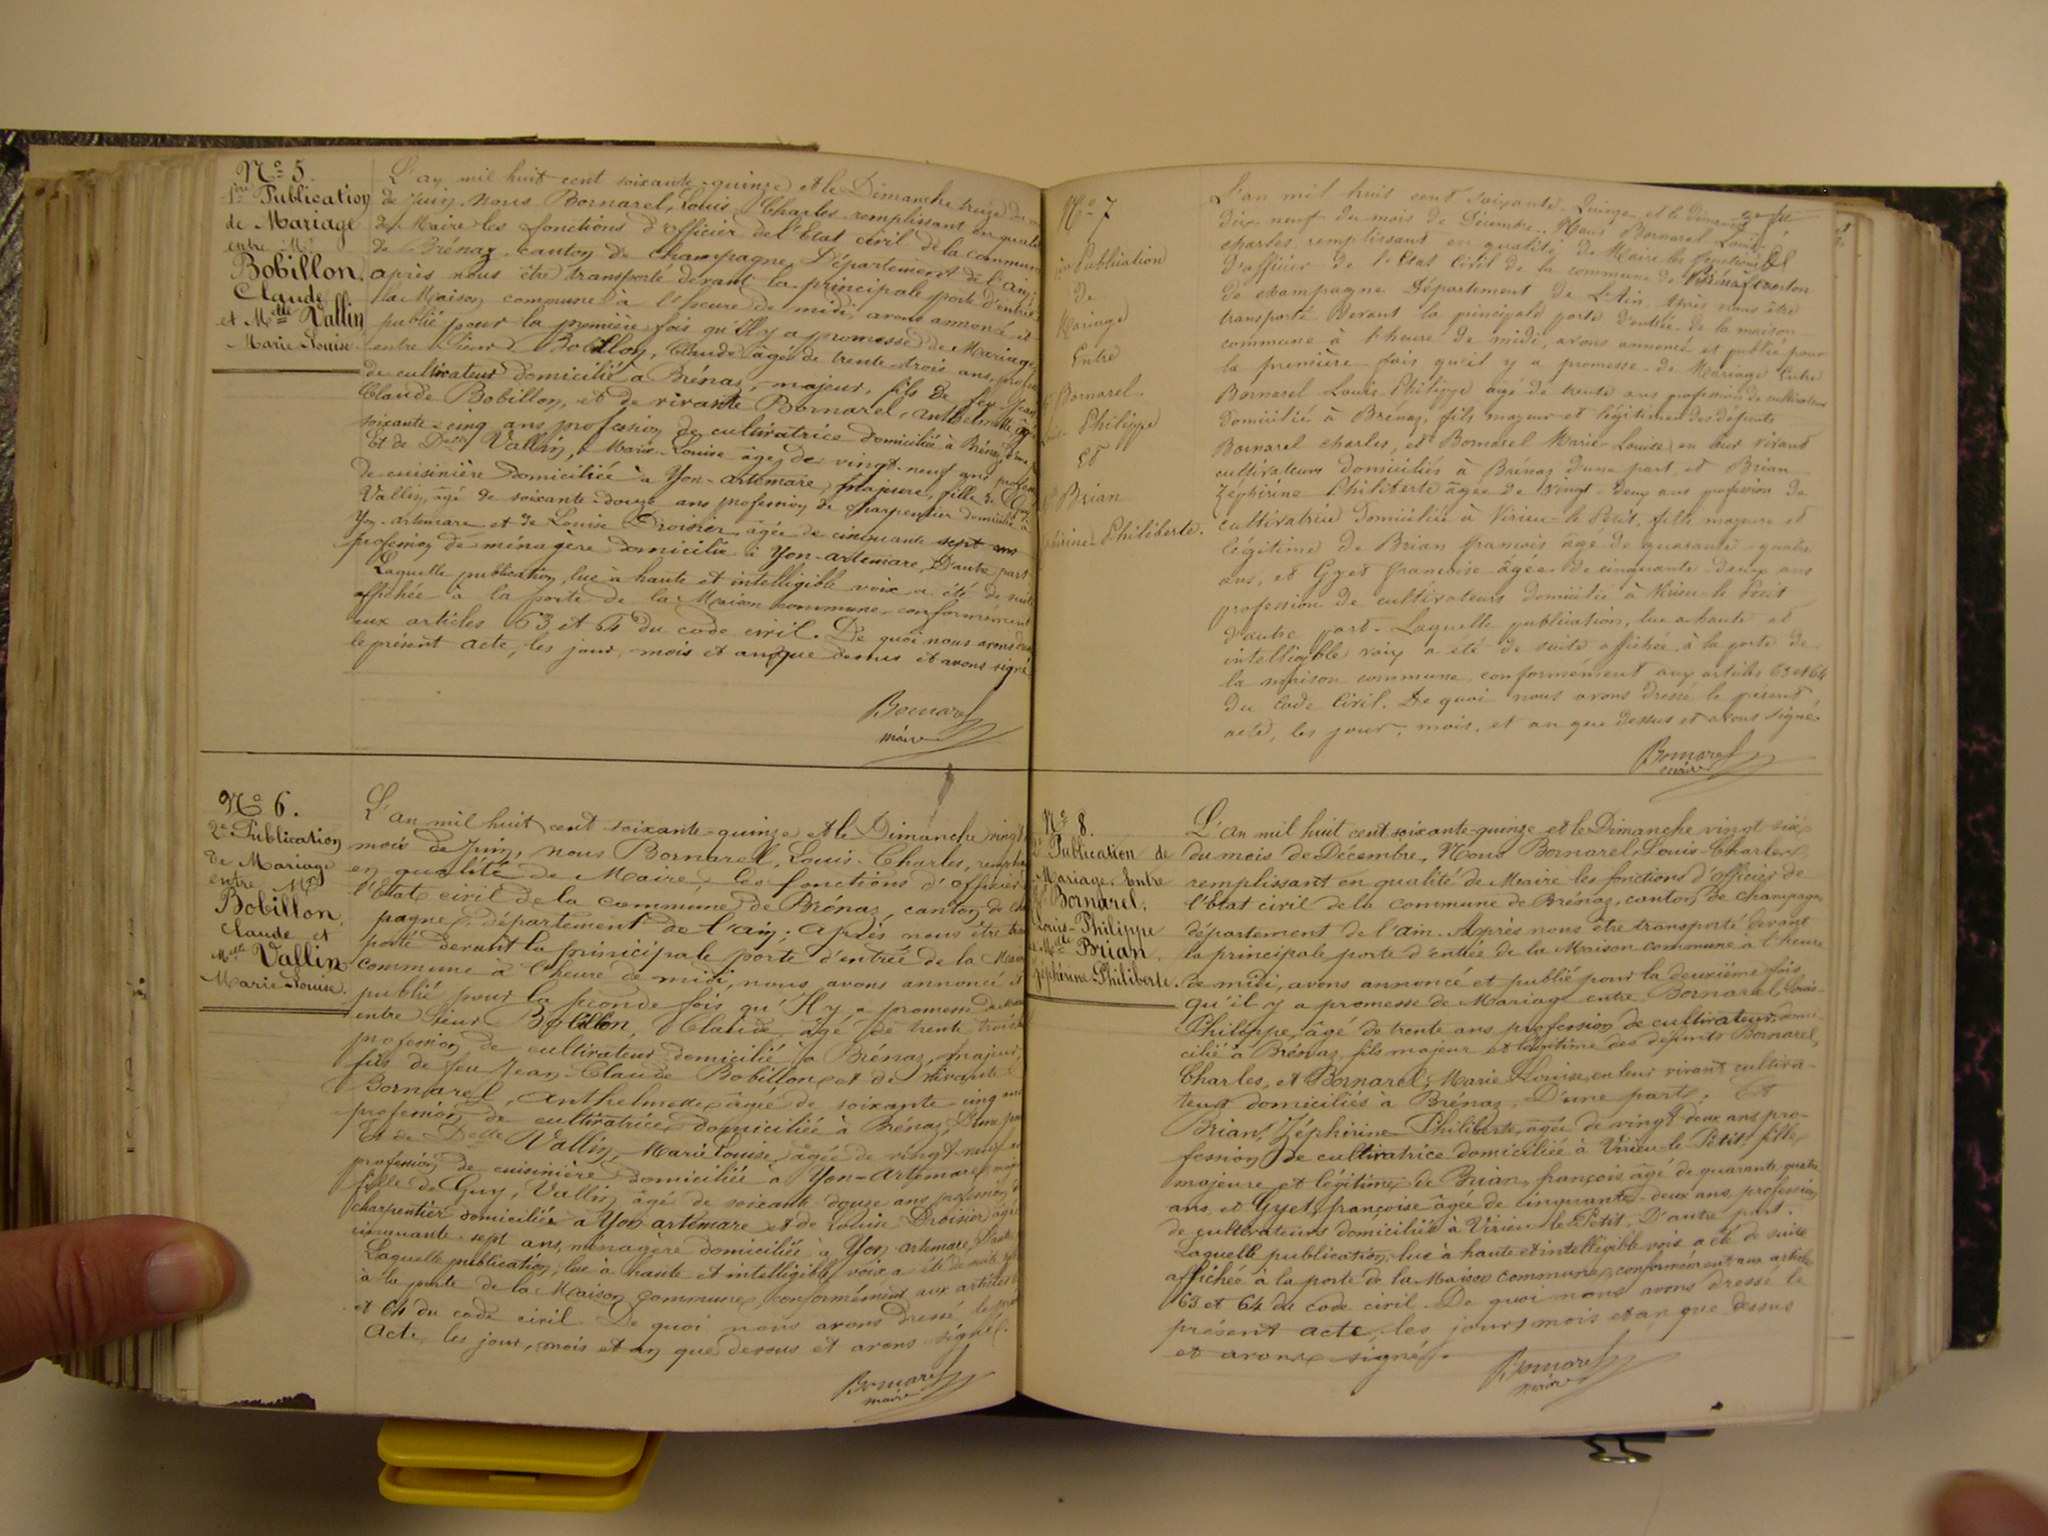 No 5.
1re Publication
de Mariage
entre Mr
Bobillon,
Claude
et Melle Vallin
Marie-Louise
L'an mil huit cent soixante-quinze et le Dimanche treize du
de Juin, nous Bornarel, Louis-Charles remplissant en qualité
de Maire les fonctions d'officier de l'Etat civil de la commune
de Brénaz, canton de Champagne, Département de l'ain,
après nous être transporté devant la principale porte d'entrée
la Maison commune à l'heure de midi, avons annoncé et
publié pour la première fois qu'Il y a promesse de Mariage
entre Sieur Bobillon, Claude âgé de trente-trois ans,
de cultivateur domicilié à Brénaz, majeur, fils de feu Jean
Claude Bobillon, et de vivante Bornarel, Anthelmette
soixante-cinq ans profession de cultivatrice domiciliée à Brénaz,
Et de Delle Vallin, Marie-Louise âgée de vingt-neuf ans
de cuisinière domiciliée à Yon-artemare, majeure, fille de Guy
Vallin, âgé de soixante-douze ans profession de charpentier domicilié à
Yon-artemare et de Louise Droisier, âgée de cinquante sept ans
profession de ménagère domiciliée à Yon-artemare, D'autre part
Laquelle publication, lue à haute et intelligible voix a été de suite
affichée à la porte de la Maison commune conformément
aux articles 63 et 64 du code civil. De quoi nous avons
le présent acte, les jour, mois et an que dessus et avons signé
Bornarel
maire
No 6.
2e Publication
de Mariage
entre Mr
Bobillon,
Claude et
Melle Vallin
Marie-Louise.
L'an mil huit cent soixante-quinze et le Dimanche vingt
mois de Juin, nous Bornarel, Louis-Charles,
en qualité de Maire, les fonctions d'officier
l'Etat civil de la commune de Brénaz, canton de
pagne, département de l'ain; après nous être
porté devant la principale porte d'entrée de la
commune à l'heure de midi, nous avons annoncé et
publié pour la seconde fois qu'Il y a promesse de
entre Sieur Bobillon, Claude, âgé de trente trois
profession de cultivateur domicilié à Brénaz, majeur,
fils de feu Jean-Claude Bobillon et de vivante
Bornarel, Anthelmette âgée de soixante cinq ans
profession de cultivatrice domiciliée à Brénaz,
Et de Delle Vallin, Marie Louise, âgée de vingt-neuf
profession de cuisinière domiciliée à Yon-artemare,
fille de Guy, Vallin âgé de soixante douze ans, profession
charpentier domicilié à Yon-artemare et de Louise Droisier
cinquante-sept ans, ménagère domiciliée à Yon-artemare,
Laquelle publication, lue à haute et intelligible voix a été de suite
à la porte de la Maison commune, conformément aux articles
et 64 du code civil. De quoi nous avons dressé le
Acte, les jour, mois et an que dessus et avons signé.
Bornarel
maire
No 7
Publication
de
Mariage
Entre
Bornarel.
Philippe
Et
Brian
Philiberte.
L'an mil huit cent soixante-Quinze, et le
dix neuf du mois de Décembre. Nous Bornarel Louis
charles, remplissant en qualité de Maire les fonctions
d'officier de l'Etat Civil de la commune de Brénaz canton
de champagne Département de L'Ain. Après nous être
transporté Devant la principale porte d'entrée de la maison
commune à l'heure de midi, avons annoncé et publié pour
la première fois qu'il y a promesse de Mariage Entre
Bornarel Louis-Philippe âgé de trente ans profession de cultivateur
domicilié à Brénaz, fils majeur et légitime des défunts
Bornarel charles, et Bornarel Marie-Louise, en leur vivant
cultivateurs domiciliés à Brénaz d'une part, et Brian
Zéphirine Philiberte âgée de vingt-deux ans profession de
cultivatrice domiciliée à Virieu-le Petit, fille majeure et
légitime de Brian françois âgé de quarante-quatre
ans, et Gyet françoise âgée de cinquante-deux ans
profession de cultivateurs domiciliés à Virieu-le Petit
d'autre part. Laquelle publication, lue à haute et
intelligible voix a été de suite affichée à la porte de
la maison commune, conformément aux articles 63 et 64
du Code Civil. De quoi nous avons dressé le présent
acte, les jour, mois, et an que dessus et avons signé.
Bornarel
maire
No 8.
Publication de
Mariage. Entre
Bornarel.
Louis-Philippe
Melle Brian.
Zéphirine-Philiberte.
L'an mil huit cent soixante-quinze et le Dimanche vingt six
du mois de Décembre, Nous Bornarel-Louis-Charles,
remplissant en qualité de Maire les fonctions d'officier de
l'état civil de la commune de Brénaz, canton de champagne
département de l'ain. Après nous être transporté devant
la principale porte d'entrée de la Maison commune à l'heure
de midi, avons annoncé et publié pour la deuxième fois
qu'il y a promesse de Mariage entre Bornarel, Louis-
Philippe, âgé de trente ans profession de cultivateur, domi-
cilié à Brénaz, fils majeur et légitime des défunts Bornarel,
Charles, et Bornarel, Marie Louise, en leur vivant cultiva-
teurs domiciliés à Brénaz. D'une part; Et
Brian, Zéphirine-Philiberte, âgée de vingt-deux ans pro-
fession de cultivatrice domiciliée à Virieu-le Petit, fille
majeure et légitime de Brian, françois âgé de quarante quatre
ans, et Gyet, françoise âgée de cinquante-deux ans, profession
de cultivateurs domiciliés à Virieu le Petit, D'autre part.
Laquelle publication, lue à haute et intelligible voix a été de suite
affichée à la porte de la Maison commune, conformément aux articles
63 et 64 du code civil. De quoi nous avons dressé le
présent acte, les jours mois et an que dessus
et avons signé.
Bornarel
maire